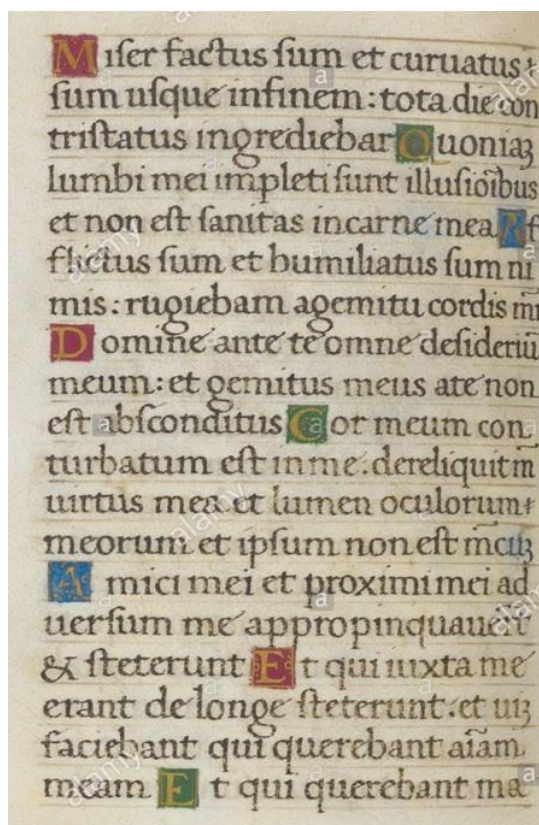 Miser factus sum et curuatus
sum usque infinem: tota die con
tristatus ingrediebar Quoniaꝫ
lumbi mei impleti sunt illusioībus
et non est sanitas incarne mea Af
flictus sum et humiliatus sum ni
mis: rugiebam agemitu cordis mī
Domine ante te omne desideriū
meum: et gemitus meus ate non
est absconditus Cor meum con
turbatum est in me. dereliquit m
uirtus mea et lumen oculorum
meorum et ipsum non est mcuꝫ
Amici mei et proximi mei ad
uersum me appropinquauert̄
& steterunt Et qui iuxta me
erant de longe steterunt. et uiꝫ
faciebant qui querebant aīam
meam Et qui querebant ma
alamy